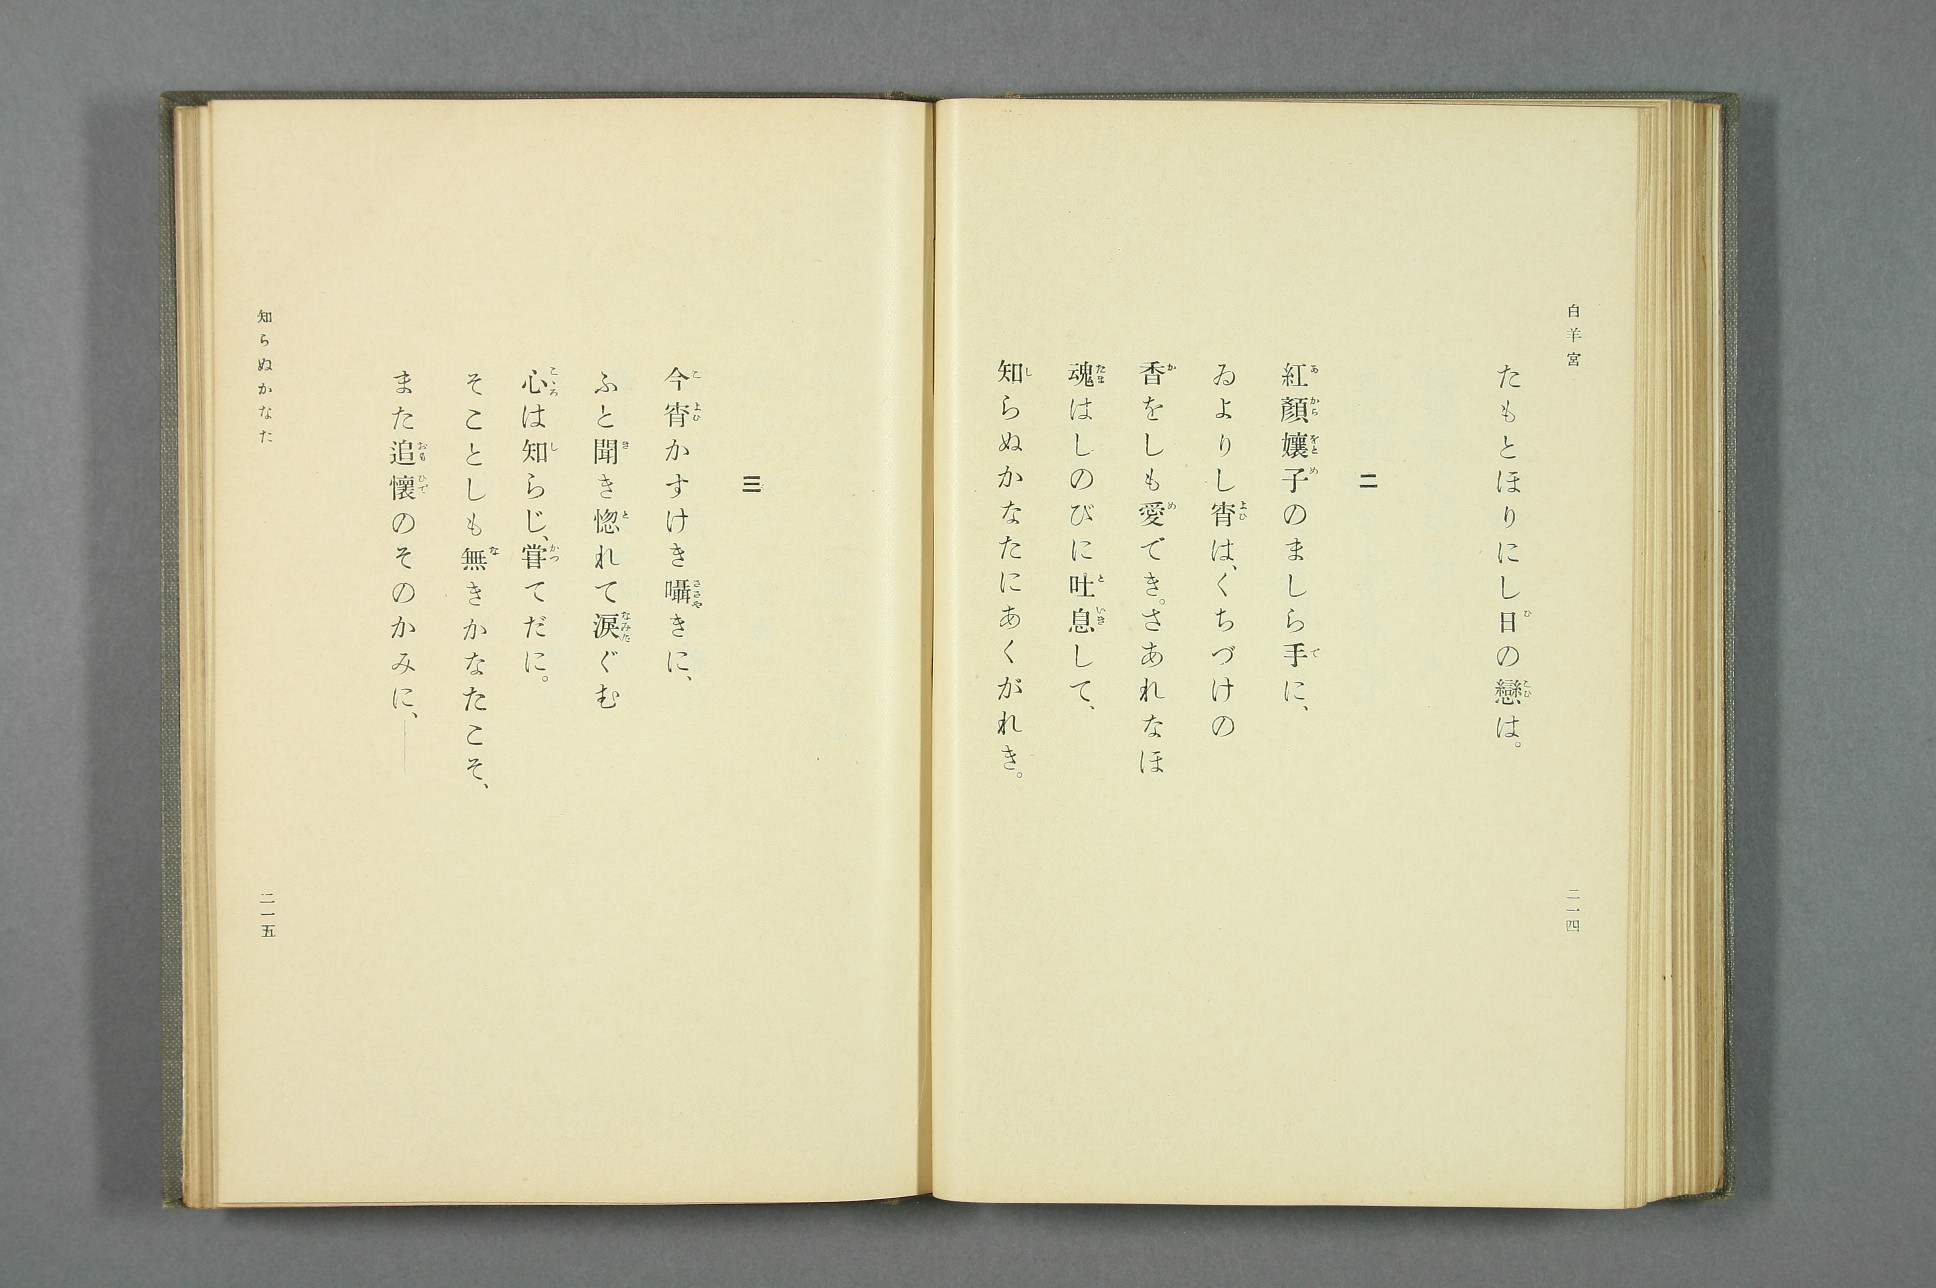 白羊宮
たもとほりにし日の戀は。
二
紅顏孃子のましら手に、
ゐよりし宵は、くちづけの
香をしも愛でき。さあれなほ
魂はしのびに吐息して、
知らぬかなたにあくがれき。
二一四
三
今宵かすけき囁きに、
ふと聞き惚れて淚ぐむ
心は知らじ、甞てだに。
そことしも無きかなたこそ、
また追懷のそのかみに、――
知らぬかなた
二一五